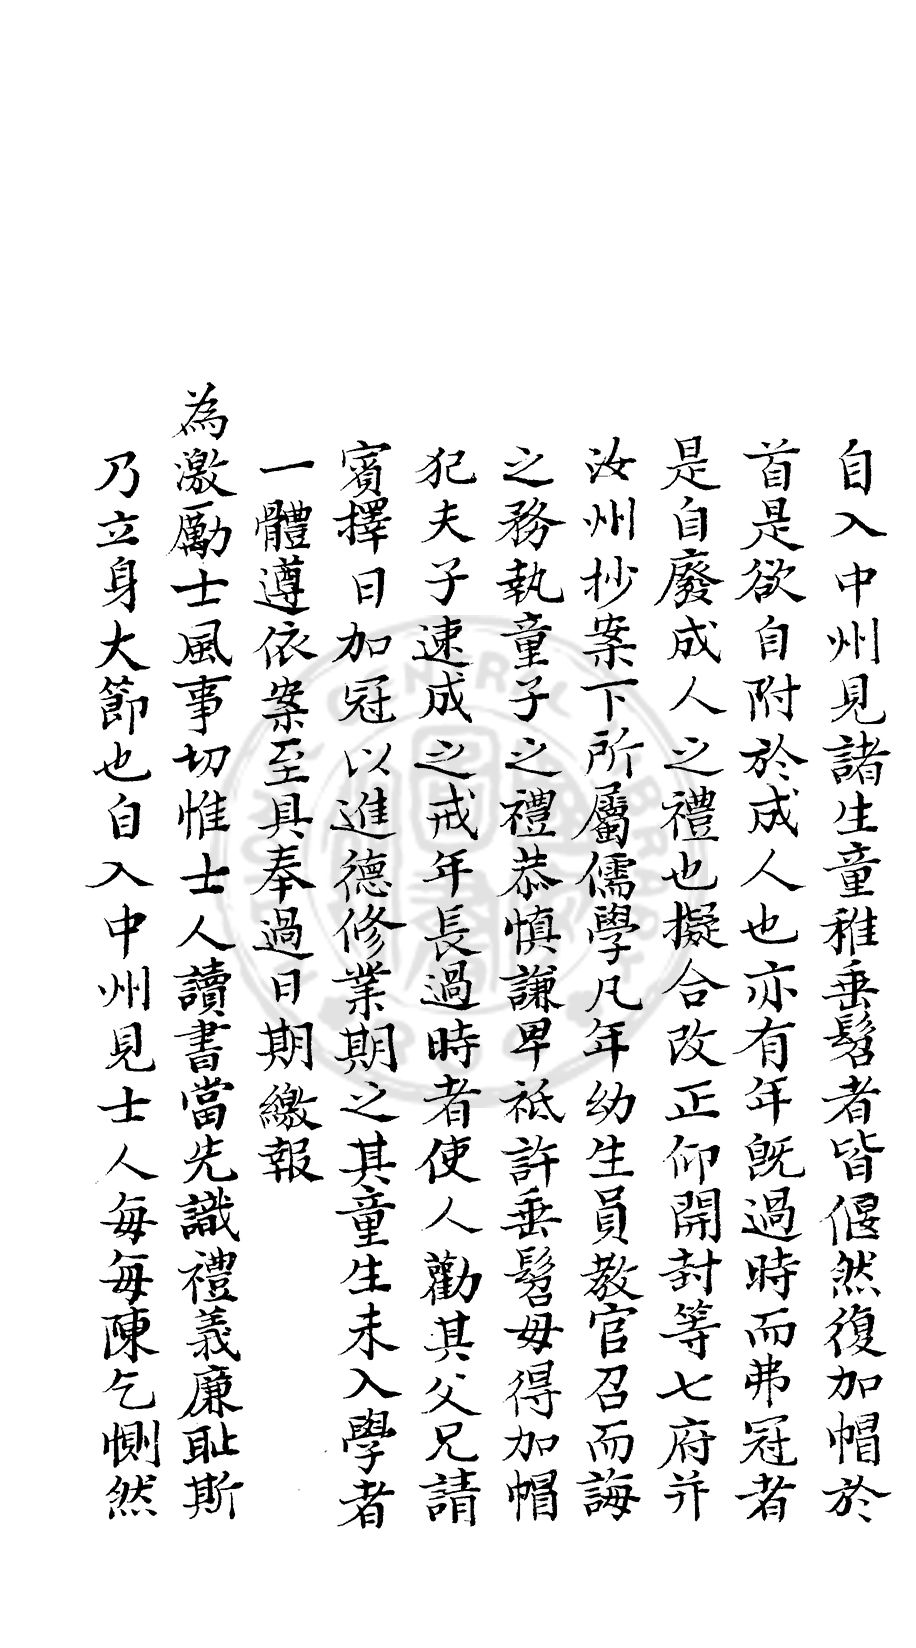 自入中州見諸生童稚垂髫者皆偃然復加帽於
首是欲自附於成人也亦有年旣過時而弗冠者
是自廢成人之禮也擬合改正仰開封等七府并
汝州抄案下所屬儒學凡年幼生員教官召而誨
之務執童子之禮恭慎謙卑祗許垂髫毋得加帽
犯夫子速成之戒年長過時者使人勸其父兄請
賓擇日加冠以進德修業期之其童生未入學者
一體遵依案至具奉過日期繳報
為激勵士風事切惟士人讀書當先識禮義廉耻斯
乃立身大節也自入中州見士人每每陳乞惻然